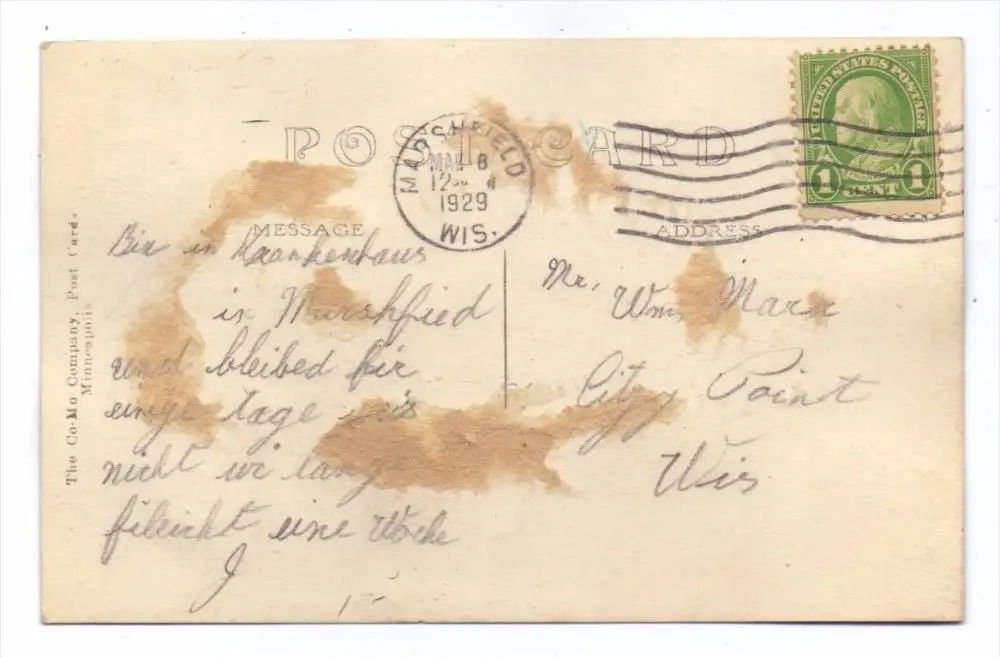 POST CARD
MARSHFIELD
MAR 8
12
1929
WIS.
UNITED STATES POSTAGE
1 CENT 1
MESSAGE
ADDRESS
Bin in Krankenhaus
in Marshfied
und bleibed fir
einige tage
nicht wi lang
fileicht eine Woche
J
Mr. Wm. Marx
City Point
Wis
The Co-Mo Company, Post Cards
Minneapolis